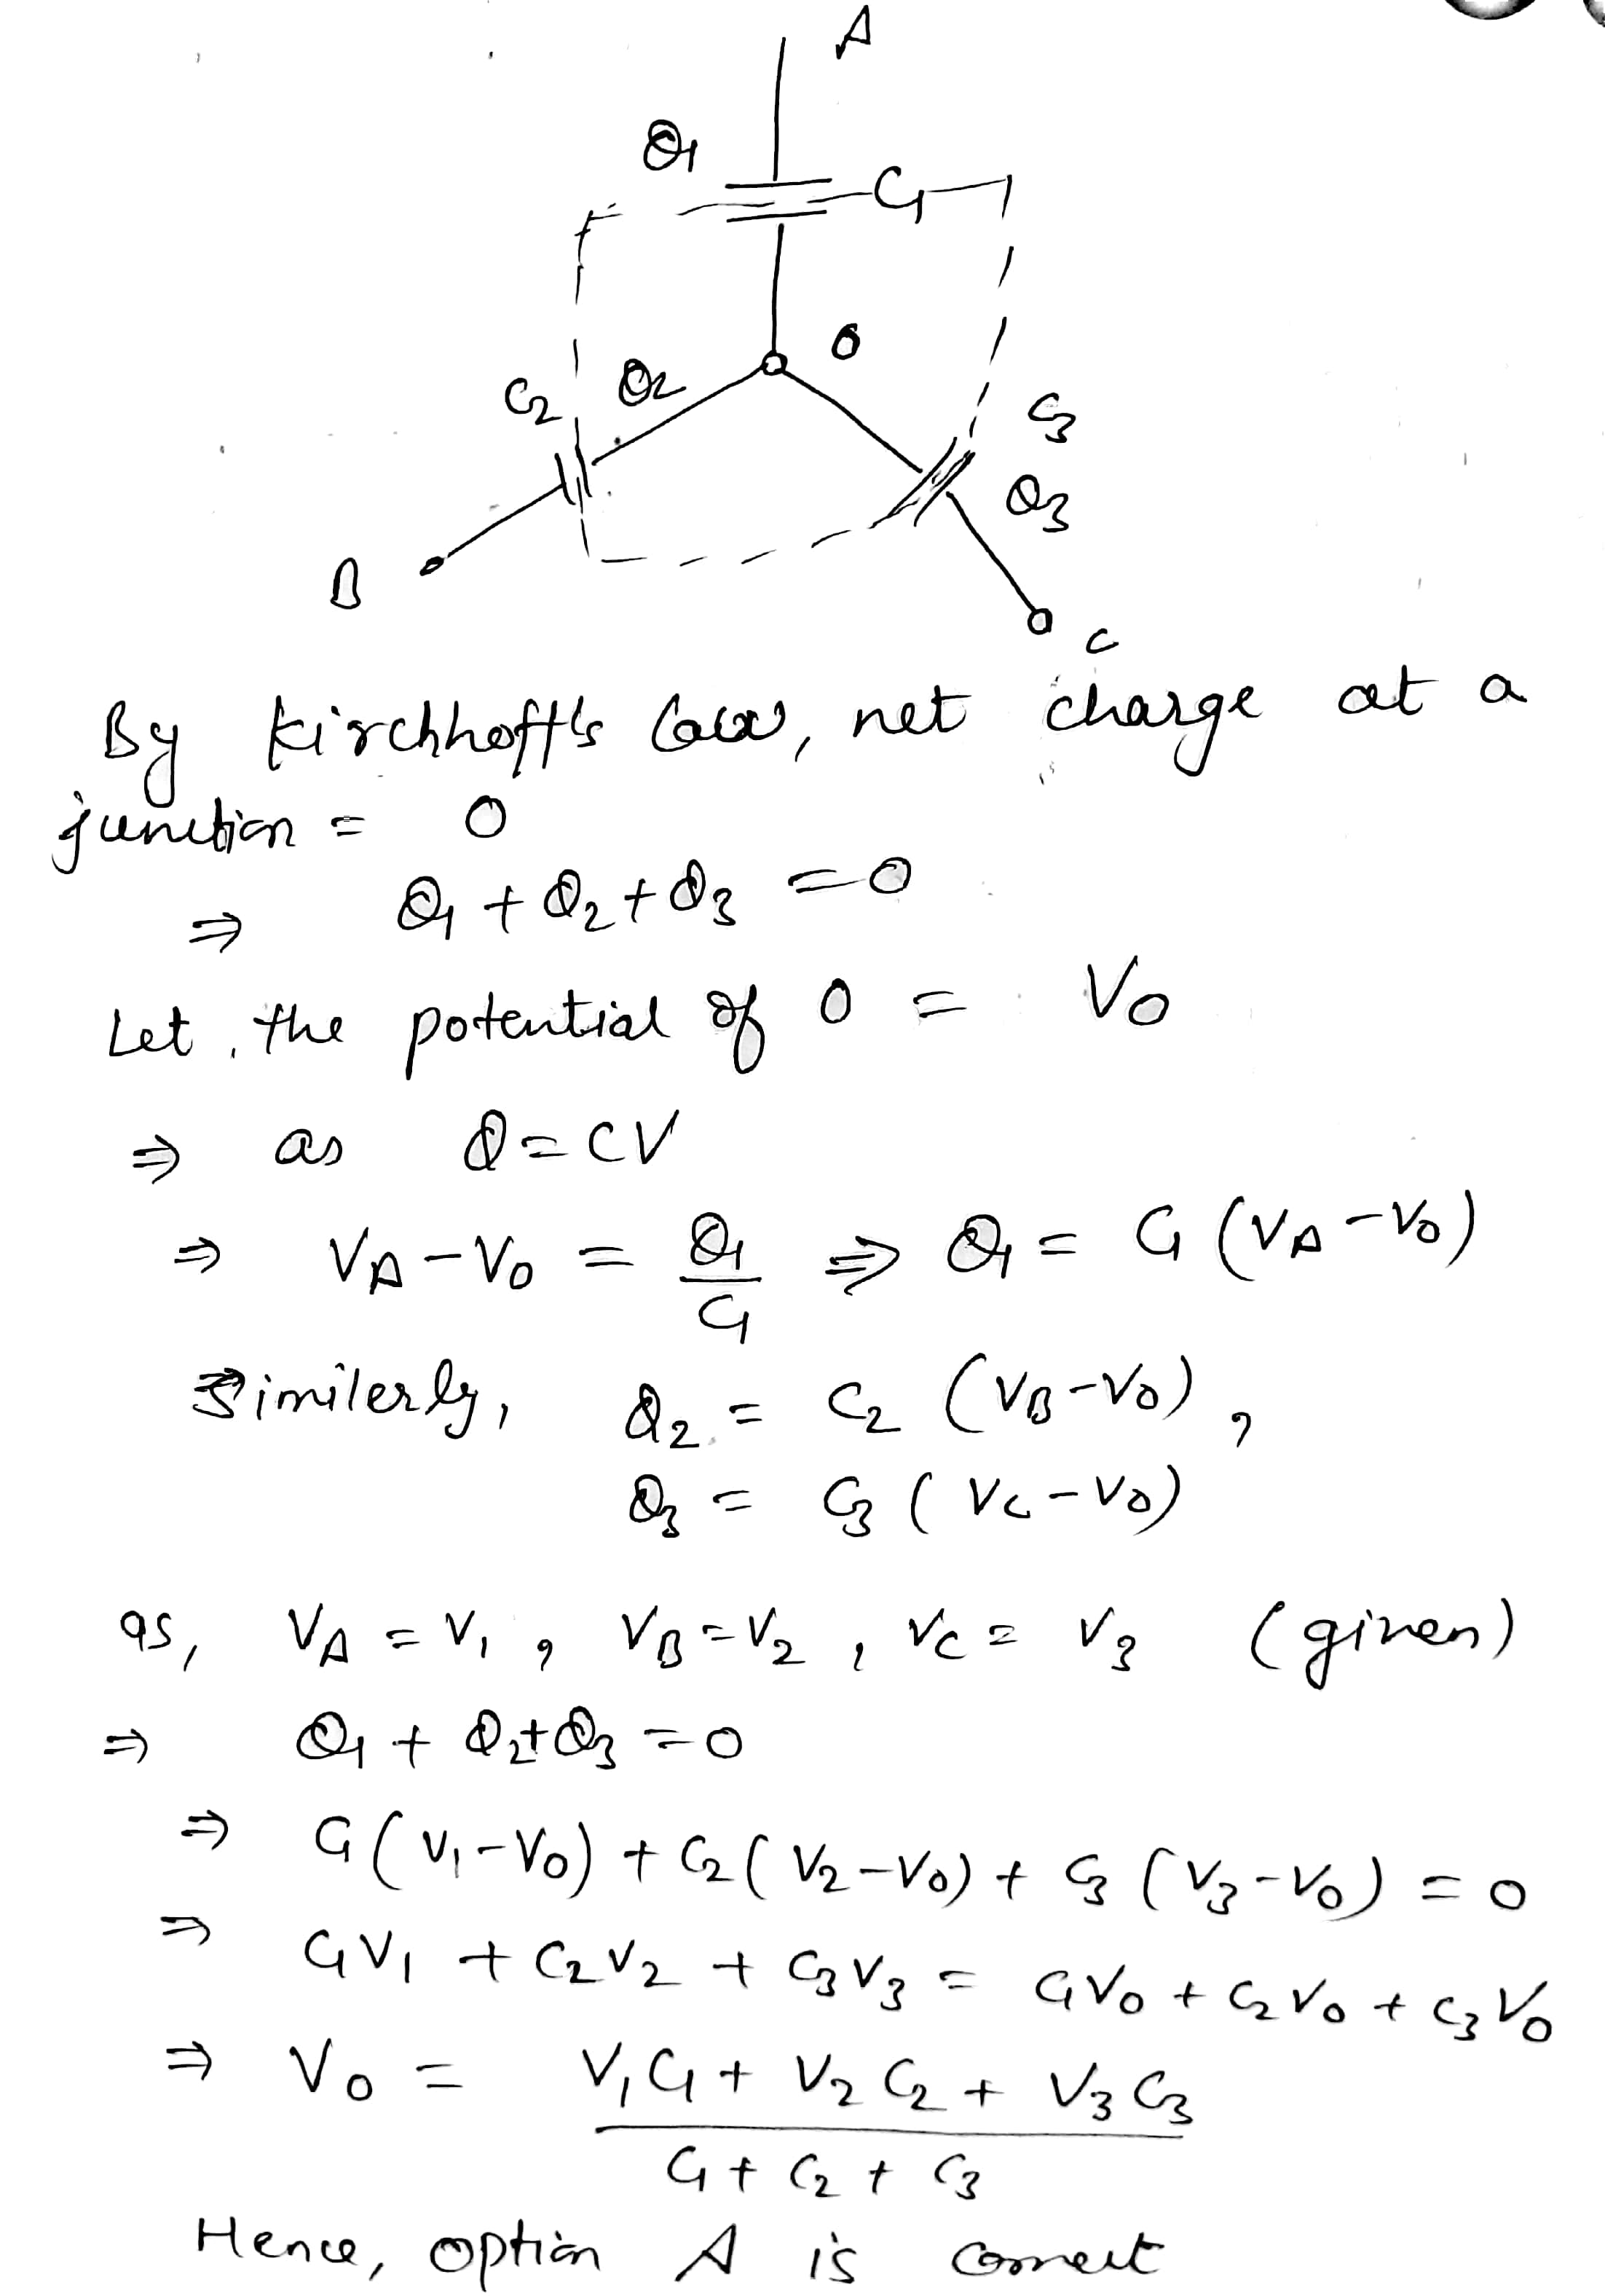 A
Q₁
C₁
O
C₂ Q₂
C₃
Q₃
B
C
By Kirchhoff's law, net charge at a
junction = 0
⇒ Q₁ + Q₂ + Q₃ = 0
Let, the potential of O = V₀
⇒ as Q = CV
⇒ V_A - V₀ = Q₁/C₁ ⇒ Q₁ = C₁ (V_A - V₀)
Similerly, Q₂ = C₂ (V_B - V₀),
Q₃ = C₃ (V_C - V₀)
as, V_A = V₁, V_B = V₂, V_C = V₃ (given)
⇒ Q₁ + Q₂ + Q₃ = 0
⇒ C₁(V₁ - V₀) + C₂(V₂ - V₀) + C₃(V₃ - V₀) = 0
⇒ C₁V₁ + C₂V₂ + C₃V₃ = C₁V₀ + C₂V₀ + C₃V₀
⇒ V₀ = V₁C₁ + V₂C₂ + V₃C₃
C₁ + C₂ + C₃
Hence, option A is correct